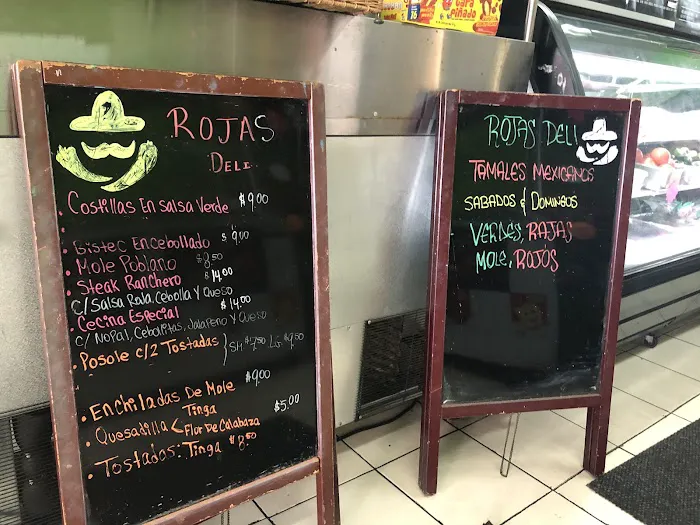 ROJAS
DELI
Costillas En Salsa Verde $9.00
Bistec Encebollado $9.00
Mole Poblano $8.50
Steak Ranchero $14.00
C/Salsa Rala, Cebolla Y Queso
Cecina Especial $14.00
C/ Nopal, Cebollitas, Jalapeño Y Queso
Posole c/2 Tostadas } SM $7.50 LG $9.50
Enchiladas De Mole $9.00
Quesadilla < Tinga $5.00
Flor De Calabaza
Tostadas: Tinga $8.50
ROJAS DELI
TAMALES MEXICANOS
SABADOS & DOMINGOS
VERDES, RAJAS
MOLE, ROJOS